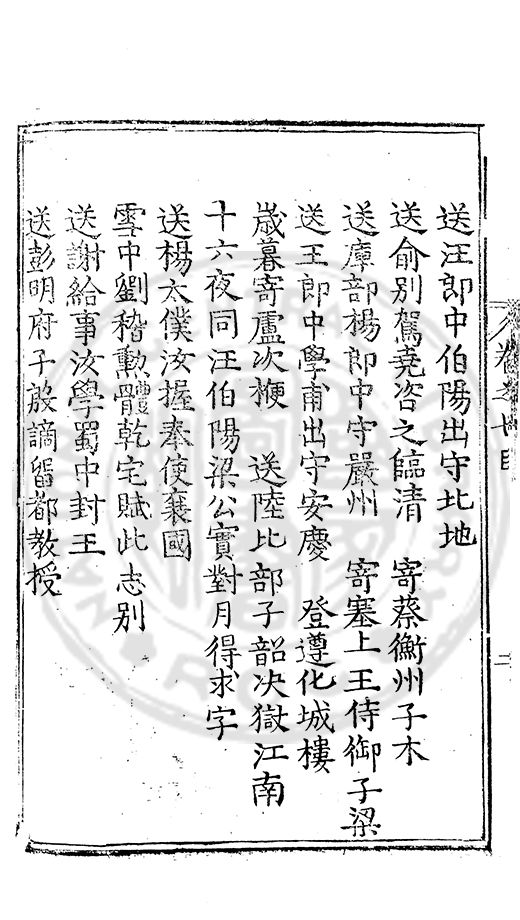 送汪郎中伯陽出守北地
送俞別駕堯咨之臨清　寄蔡衡州子木
送庫部楊郎中守嚴州　寄塞上王侍御子梁
送王郎中學甫出守安慶　登遵化城樓
歲暮寄盧次楩　送陸比部子韶決獄江南
十六夜同汪伯陽梁公實對月得求字
送楊太僕汝握奉使襄國
雪中劉稽勳體乾宅賦此志別
送謝給事汝學蜀中封王
送彭明府子殷謫留都教授
卷之七目
二